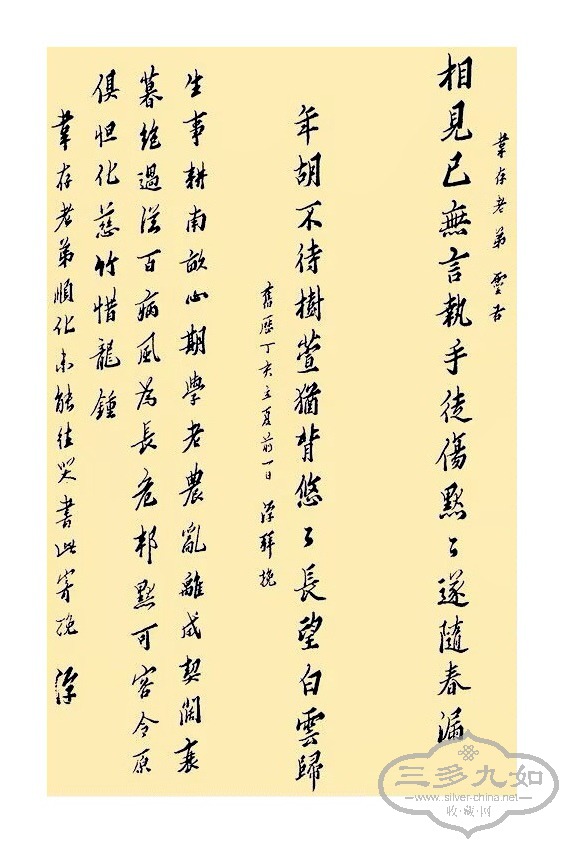 葦存老弟 靈右
相見已無言執手徒傷黙々遂隨春漏
年胡不待樹萱猶背悠々長望白雲歸
舊歷丁亥立夏前一日 拜挽
生事耕南畝心期學老農亂離成契闊衰
暮絶過從百病風為長危邦黙可容令原
俱怛化慈竹惜龍鍾
葦存老弟順化未能往哭書此寄挽
三多九如
—www.silver-china.net—
收·藏·网